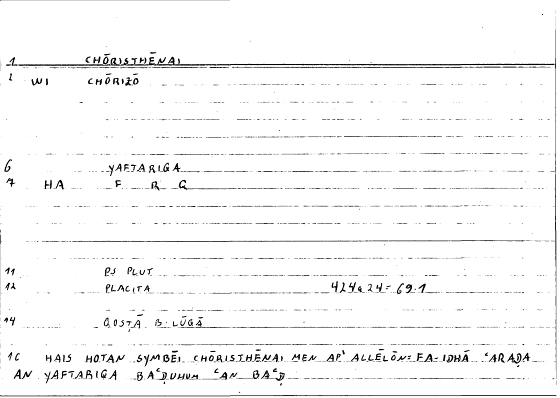 1 CHŌRISTHĒNAI
2 WI CHŌRIZŌ
6 YAFTARIGA
7 HA F R G
11 PS PLUT
12 PLACITA 424a24=69.1
14 QOSṬĀ B. LŪGĀ
16 HAIS HOTAN SYMBĒI CHŌRISTHĒNAI MEN AP' ALLĒLŌN= FA-IDHĀ ʿARAḌA
AN YAFTARIGA BAʿḌUHUM ʿAN BAʿḌ